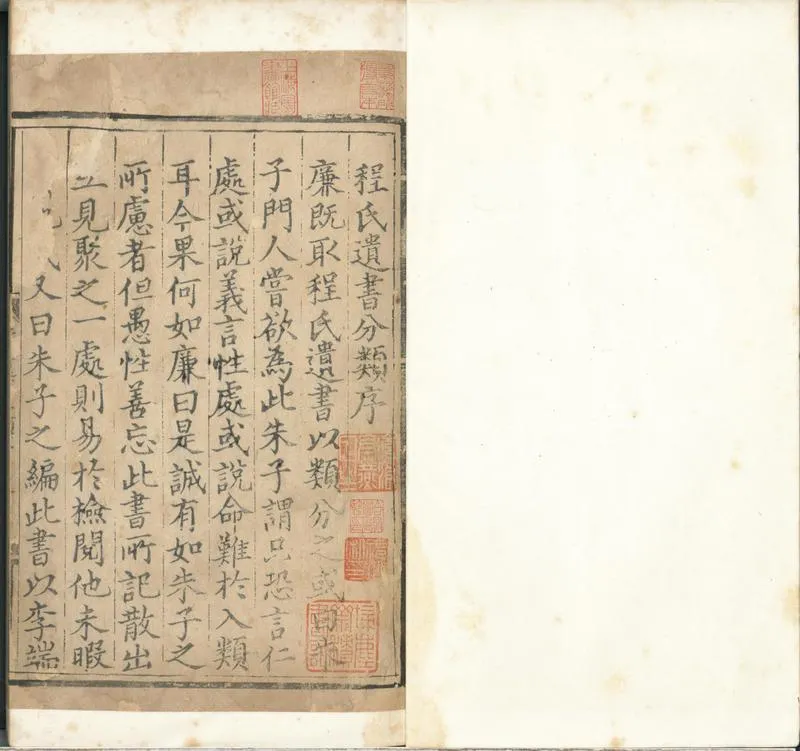 程氏遺書分類序
廉既取程氏遺書以類分之或曰朱
子門人嘗欲為此朱子謂只恐言仁
處或說義言性處或說命難於入類
耳今果何如廉曰是誠有如朱子之
所慮者但愚性善忘此書所記散出
見聚之一處則易於檢閱他未暇
又曰朱子之編此書以李端